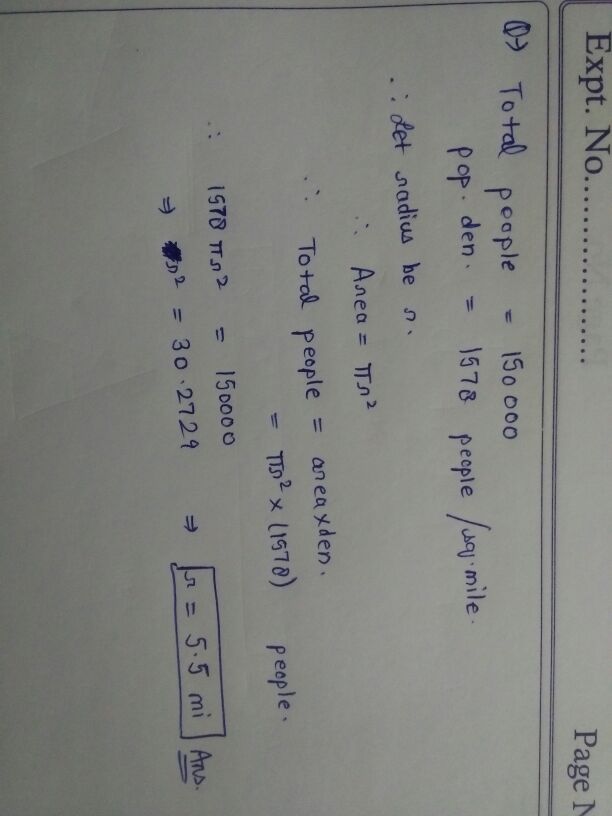 Expt. No.................... Page N
Q→ Total people = 150000
pop. den. = 1578 people /sq.mile.
∴ Let radius be r.
∴ Area = πr²
∴ Total people = area×den.
= πr² × (1578) people.
∴ 1578 πr² = 150000
⇒ r² = 30.2729 ⇒ r = 5.5 mi Ans.